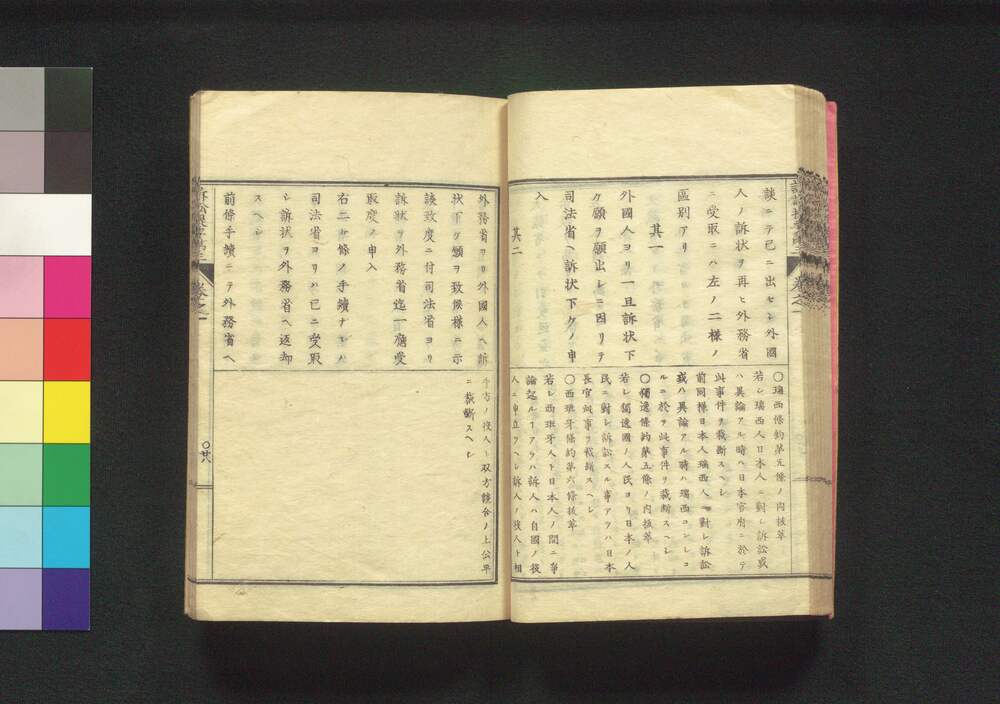 談ニテ已ニ出セシ外國
人ノ訴状ヲ再ヒ外務省
ニ受取ニハ左ノ二樣ノ
區別アリ
其一
外國人ヨリ一旦訴状下
ケ願ヲ願出レニ因リテ
司法省ヘ訴状下ケノ申
入
其二
〇瑞西條約第五條ノ内抜萃
若シ瑞西人日本人ニ對シ訴訟或
ハ異論アル時ハ日本官府ニ於テ
此事件ヲ裁斷スヘシ
前同樣日本人瑞西人ニ對シ訴訟
或ハ異論アル時ハ瑞西コンシュコ
ルニ於テ此事件ヲ裁斷スヘシ
〇獨逸條約第五條ノ内抜萃
若シ獨逸國ノ人民ヨリ日本ノ人
民ニ對シ訴訟スル事アラハ日本
長官此事ヲ裁斷スヘシ
〇西班牙條約第六條抜萃
若シ西班牙人ト日本人ノ間ニ爭
論起ルヿアラハ訴人ハ自國ノ役
人ニ申立ツヘシ訴人ノ役人ト相
外務省ヨリ外國人ヘ訴
状下ケ願ヲ致候樣ニ示
談致度ニ付司法省ヨリ
訴状ヲ外務省迄一應受
取度ノ申入
右二ケ條ノ手續ナレハ
司法省ヨリハ已ニ受取
シ訴状ヲ外務省ヘ返却
スヘシ
前條手續ニテ外務省ヘ
手方ノ役人ト双方談合ノ上公平
ニ裁斷スヘシ
卷之一
〇廿八